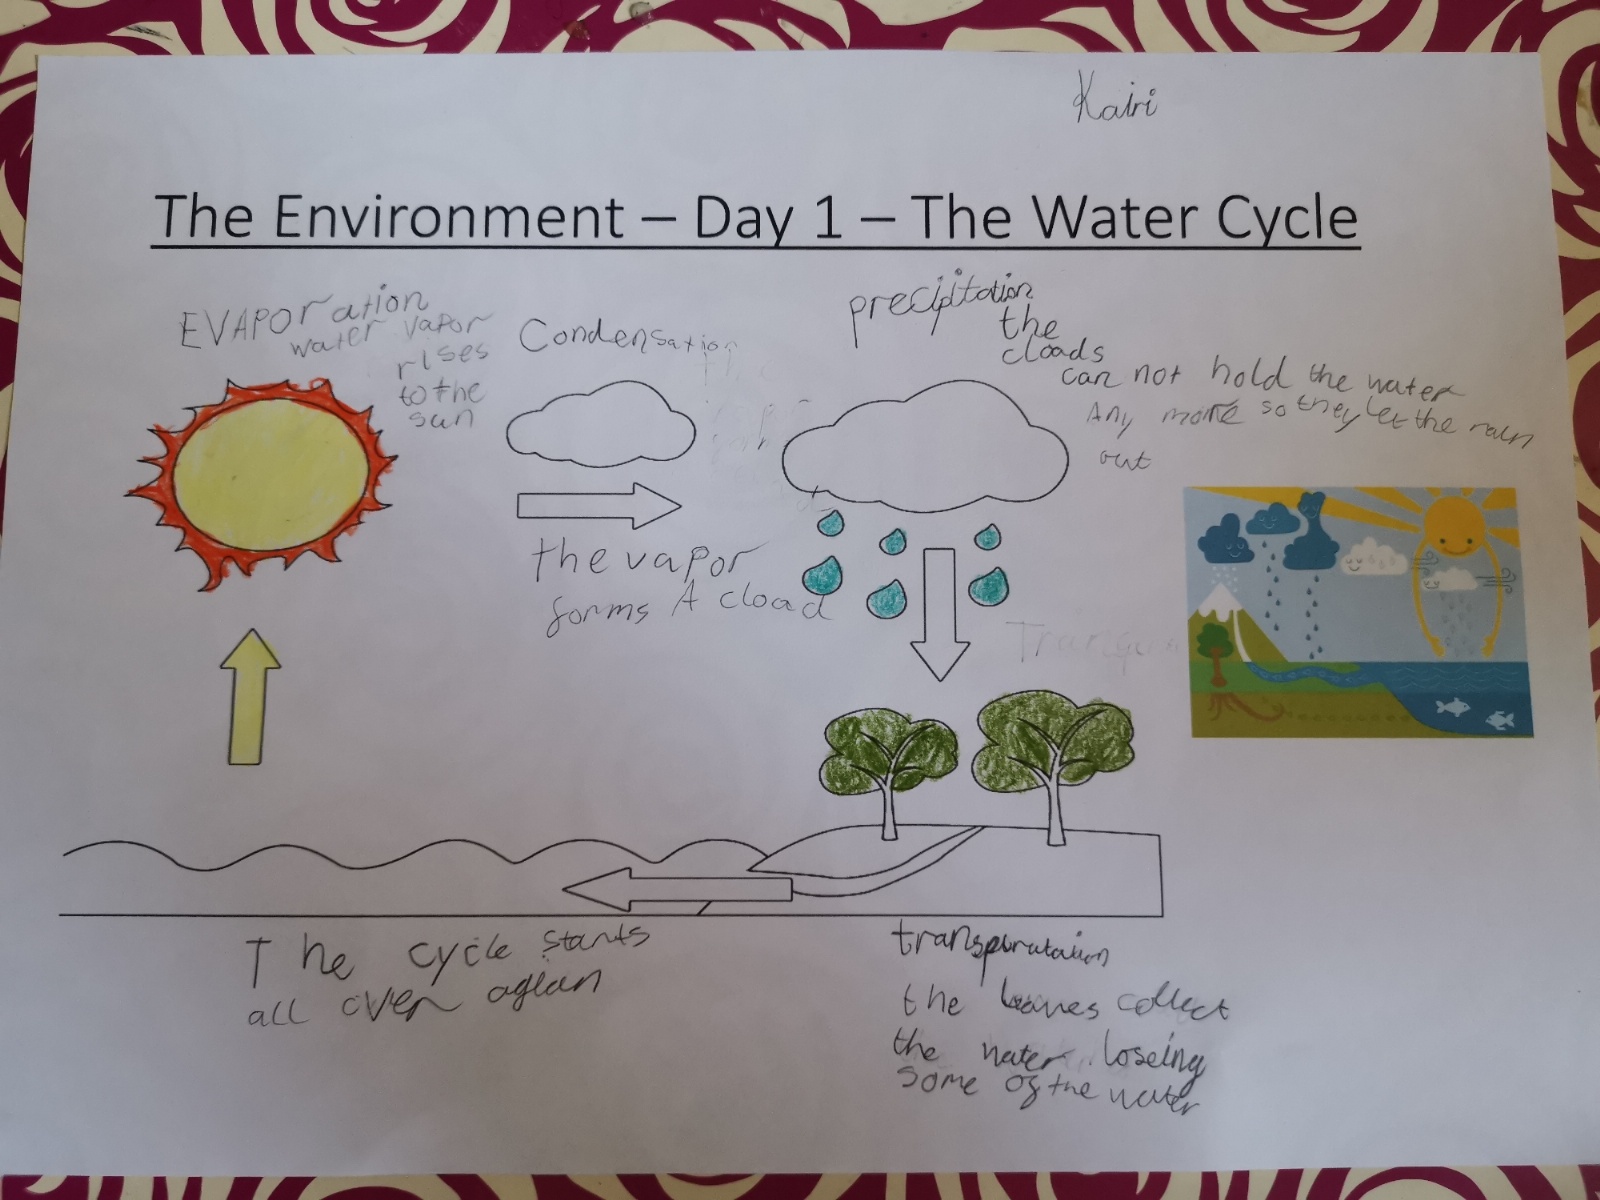 Kairi
The Environment – Day 1 – The Water Cycle
EVAPOration
water vapor
rises
to the
sun
Condensation
the vapor
forms A cload
precipitation
the
cloads
can not hold the water
Any more so they let the rain
out
The cycle starts
all over agian
the leaves collect
the water loseing
some of the water